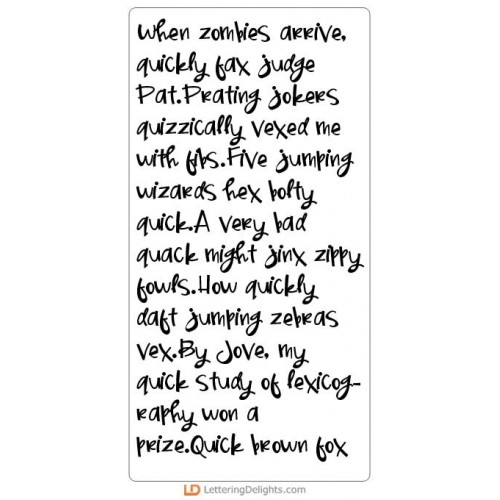 when zombies arrive,
quickly fax judge
Pat.Prating jokers
quizzically vexed me
with fibs.Five jumping
wizards hex bolty
quick.A very bad
quack might jinx zippy
fowls.How quickly
daft jumping zebras
vex.By Jove, my
quick study of lexicog-
raphy won a
prize.Quick brown fox
LD LetteringDelights.com